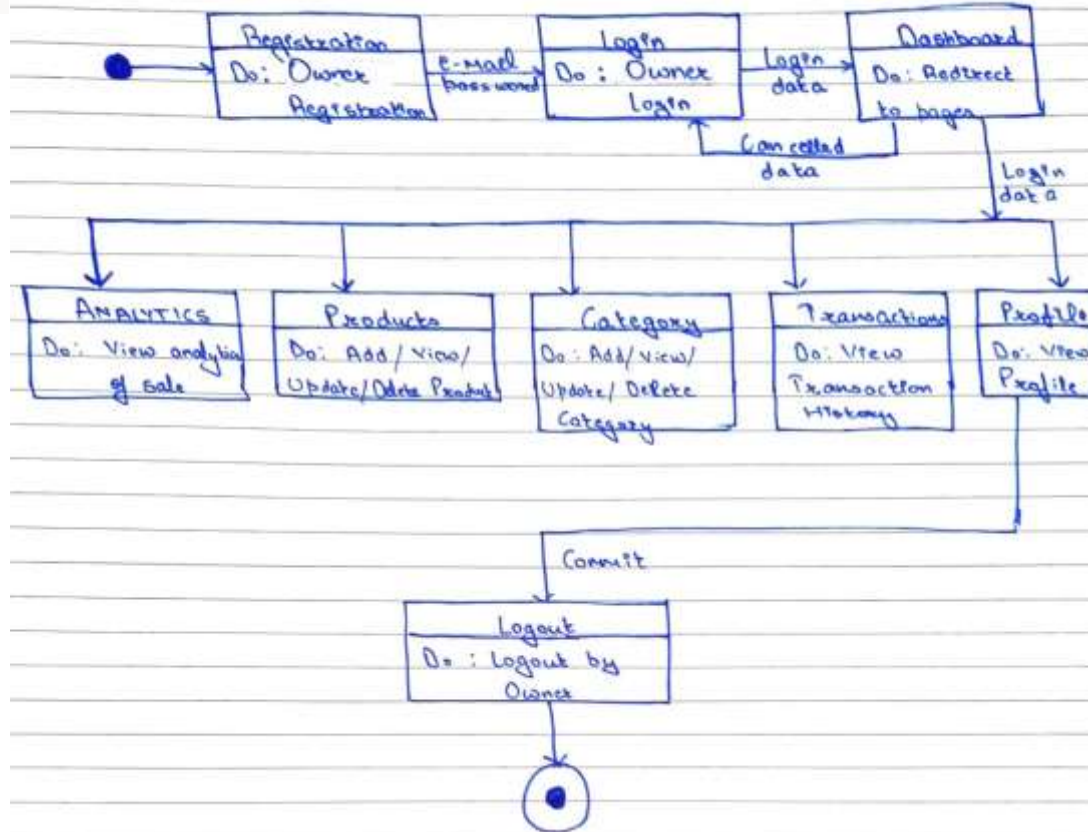 Registration
Do: Owner
Registration
e-Mail
password
Login
Do: Owner
Login
Login
data
Dashboard
Do: Redirect
to pages
Cancelled
data
Login
data
ANALYTICS
Do: View analytics
of sale
Products
Do: Add/ View/
Update/Delete Product
Category
Do: Add/ View/
Update/ Delete
Category
Transactions
Do: View
Transaction
History
Profile
Do: View
Profile
Commit
Logout
Do: Logout by
Owner